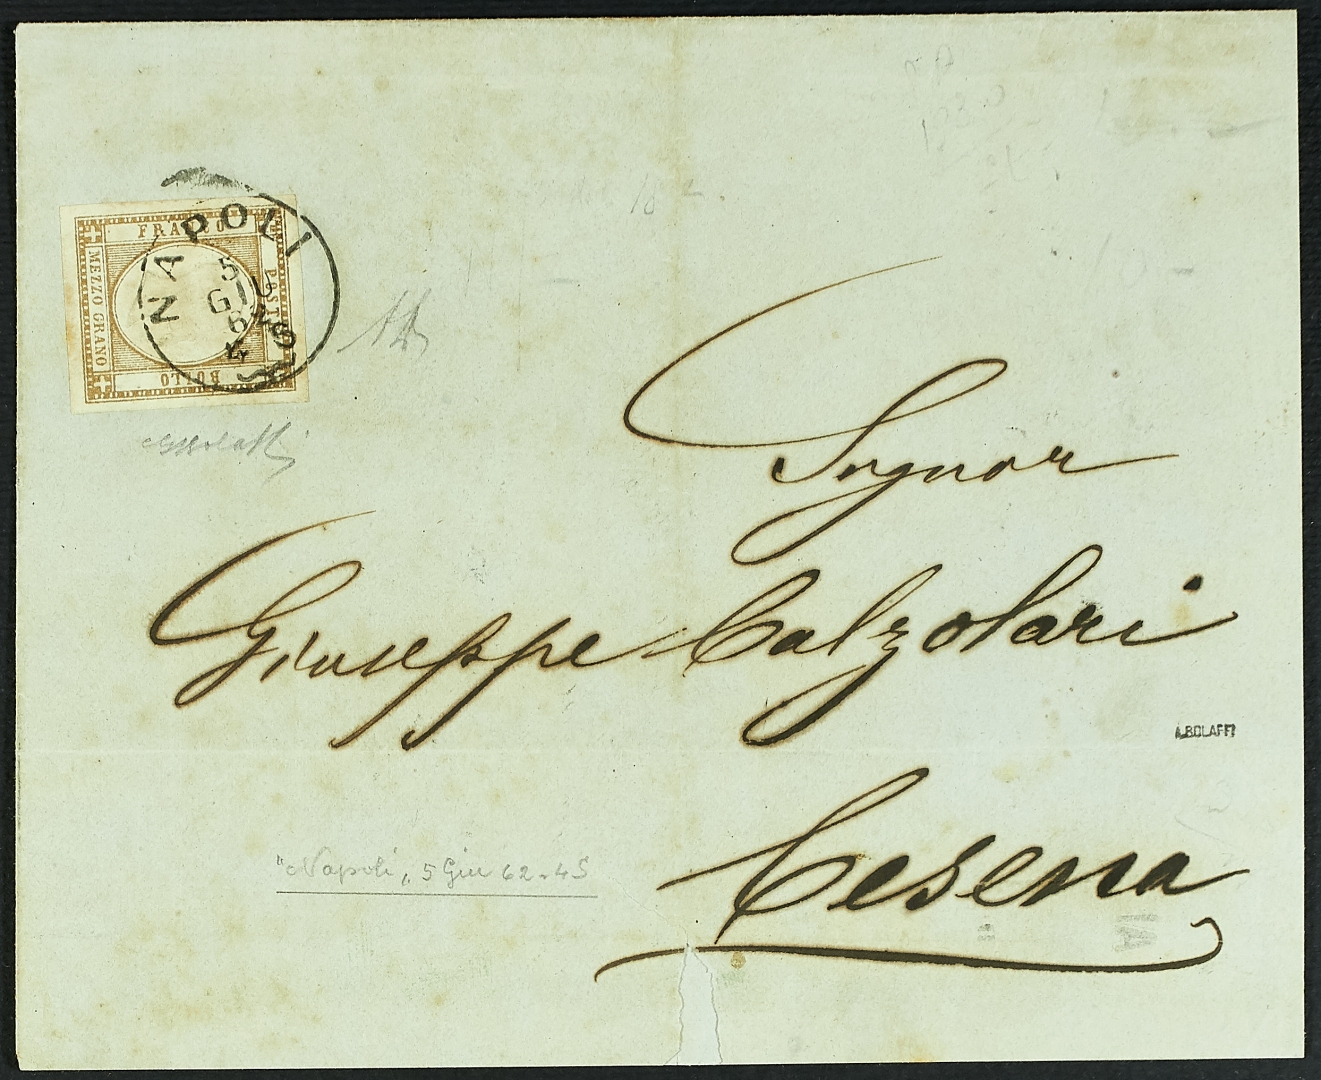 FRANCO
POSTE
BOLLO
MEZZO GRANO
NAPOLI
5
GIU
62
4S
Signor
Giuseppe Calzolari
A.BOLAFFI
Cesena
"Napoli" 5 Giu 62.4S